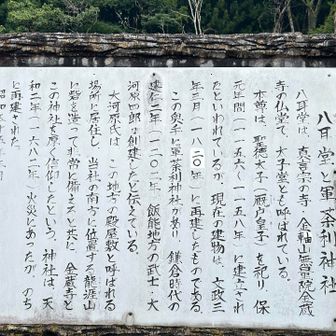 八耳堂と軍荼利神社
八耳堂は、真言宗の寺、金軸山無量院金蔵
寺の仏堂で、太子堂とも呼ばれている。
本尊は、聖徳太子（厩戸皇子）を祀り、保
元年間（一一五六〜一一五八年）に建立され
たといわれているが、現在の建物は、文政三
年三月（一八二〇年）に再建したものである。
この奥手に軍荼利神社があり、鎌倉時代の
建仁二年（一二〇二年）飯能地方の武士・大
河原四郎が創建したと伝えている。
大河原氏は、この地方の殿屋敷と呼ばれる
場所に居住し、当社の南方に位置する龍涯山
に砦を造って非常に備えると共に、金蔵寺と
この神社を厚く信仰したという。神社は、天
和二年（一六八二年）火災にあったが、のち
に再建された。